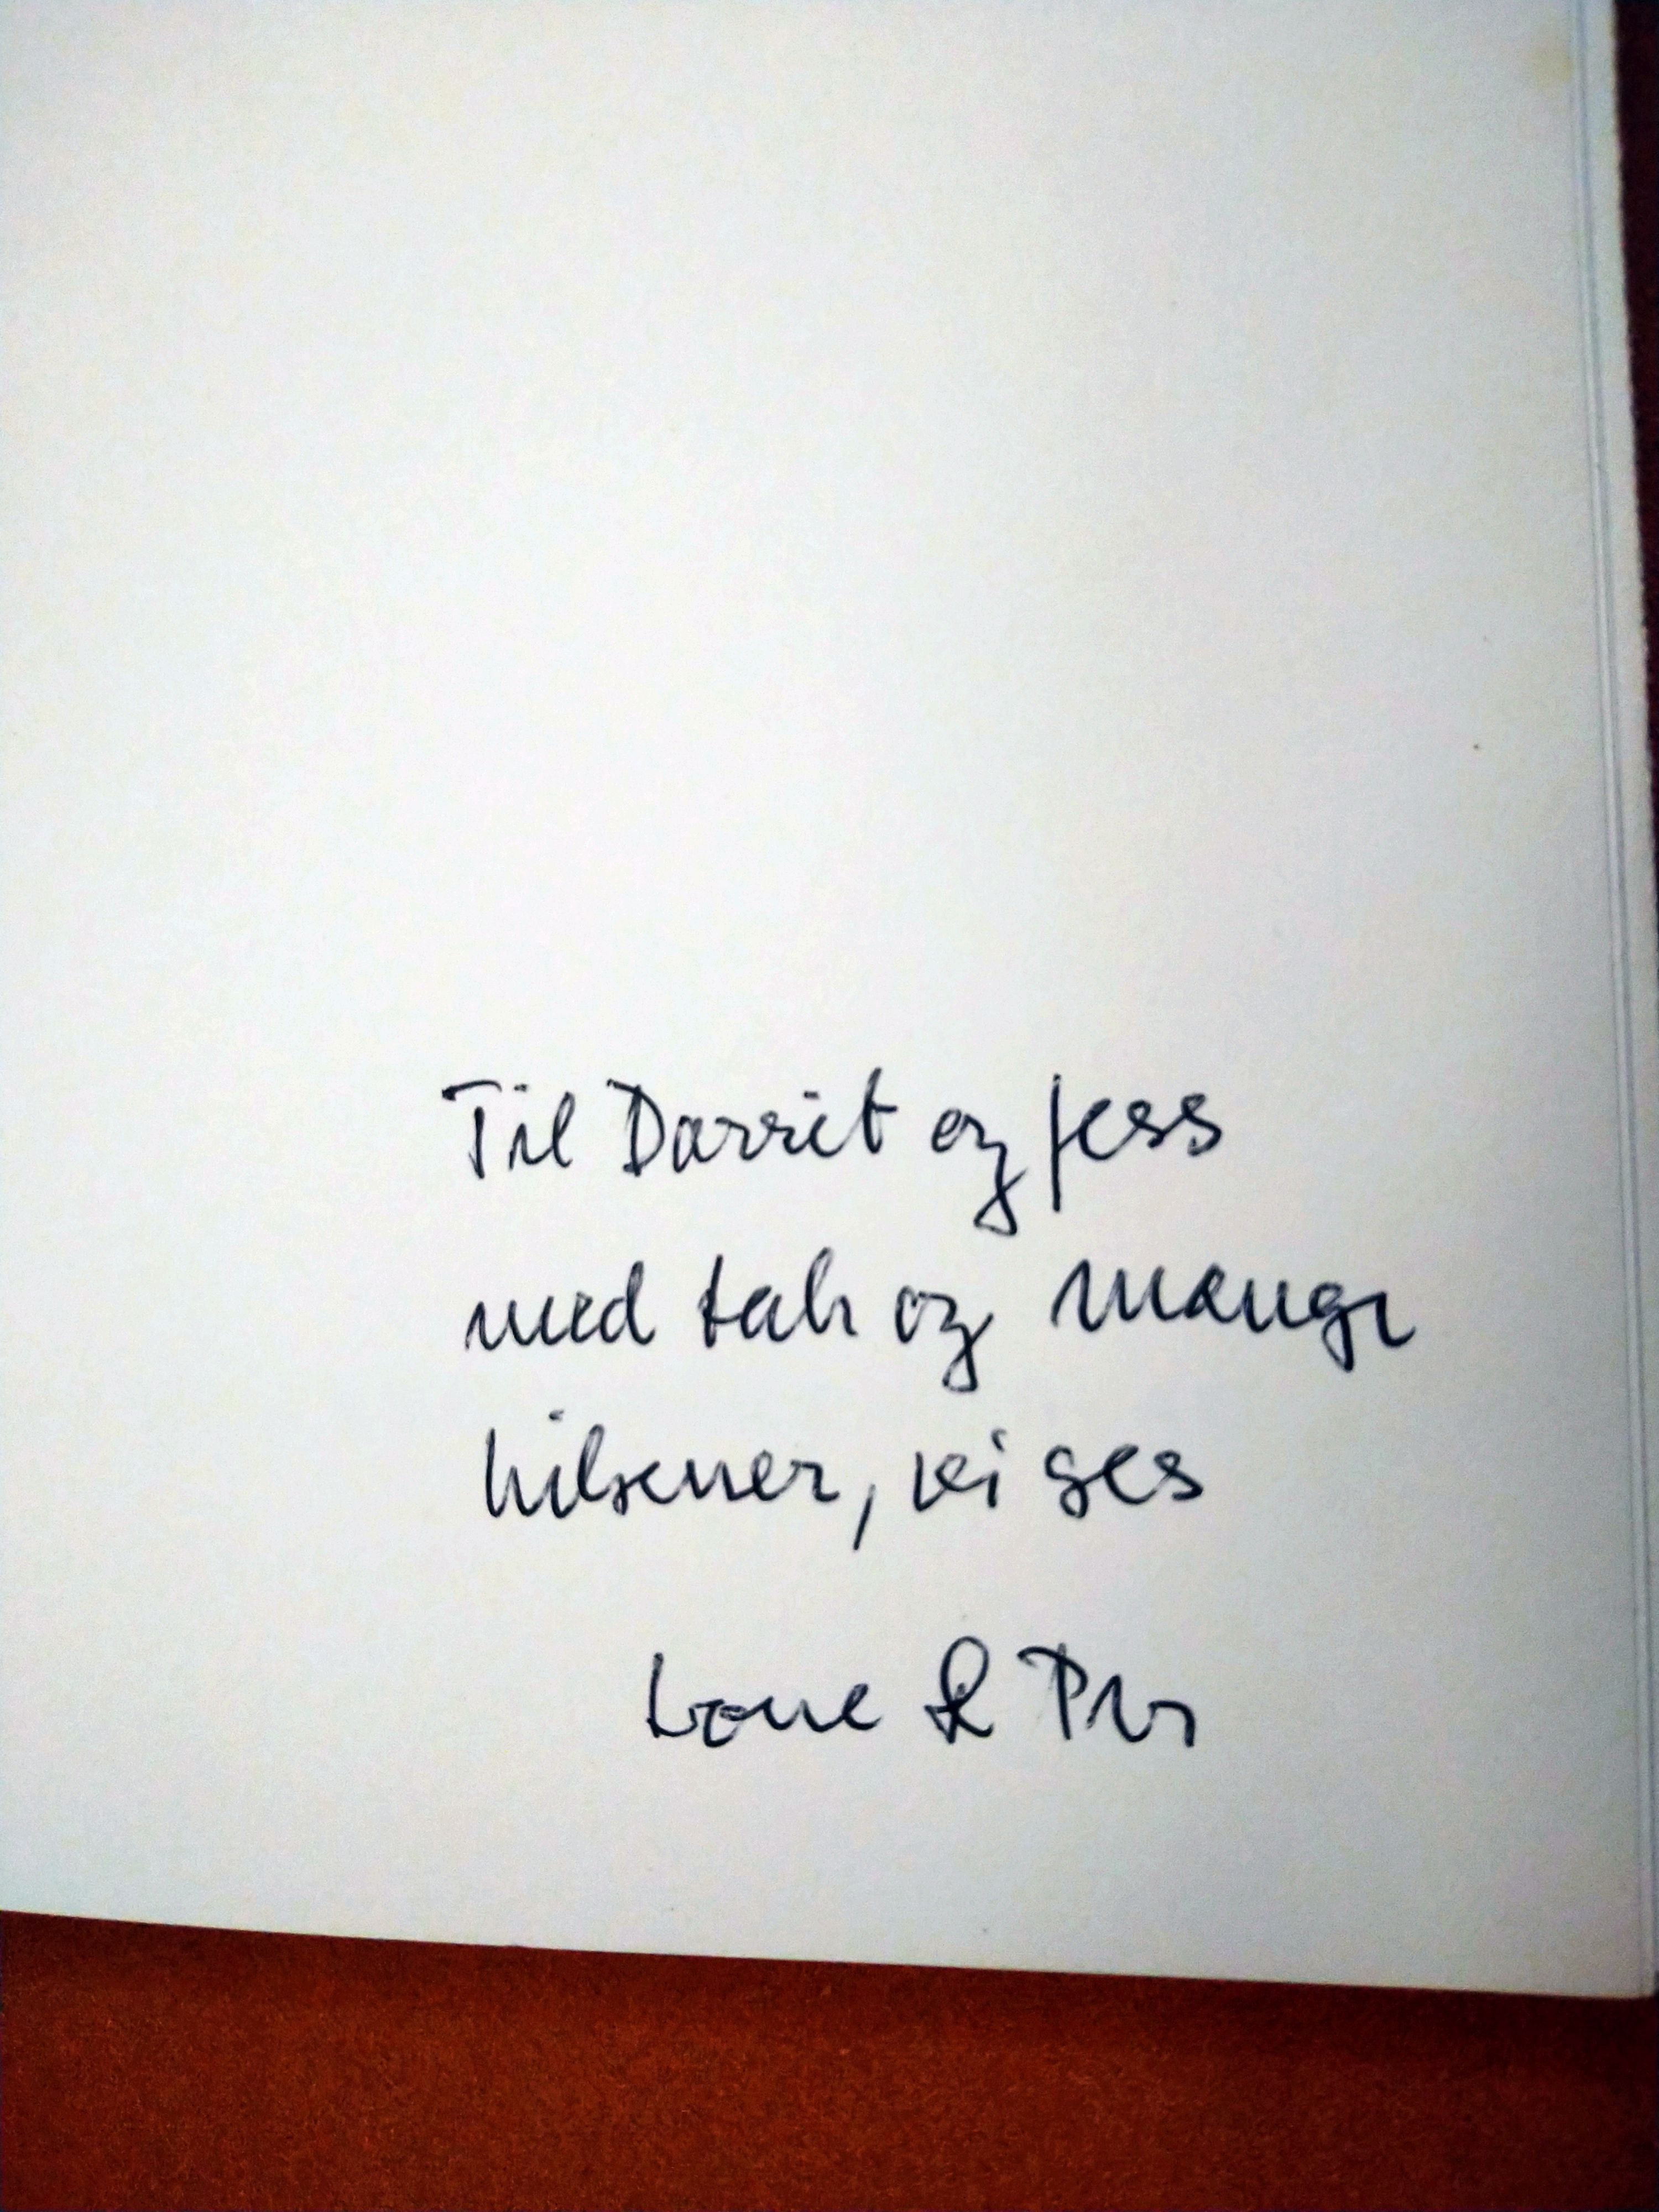 Til Dorrit og Jess
med tak og mange
hilsener, vi ses
Lone & Per